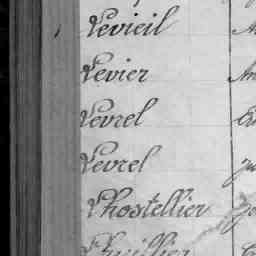 Levieil
Levier
Levrel
Levrel
Lhostellier
Lhuillier